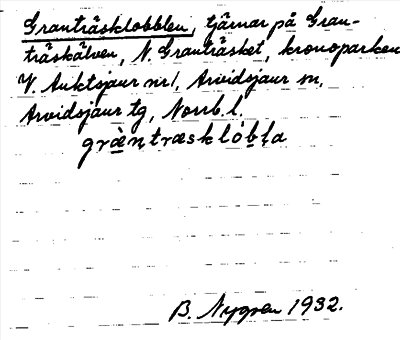 Granträsklobblen, tjärnar på Gran-
träskälven, N. Granträsket, kronoparken
V. Auktsjaur nr 1, Arvidsjaur sn,
Arvidsjaur tg, Norrb. l.
græntræsklóbḷa
B. Nygren 1932.